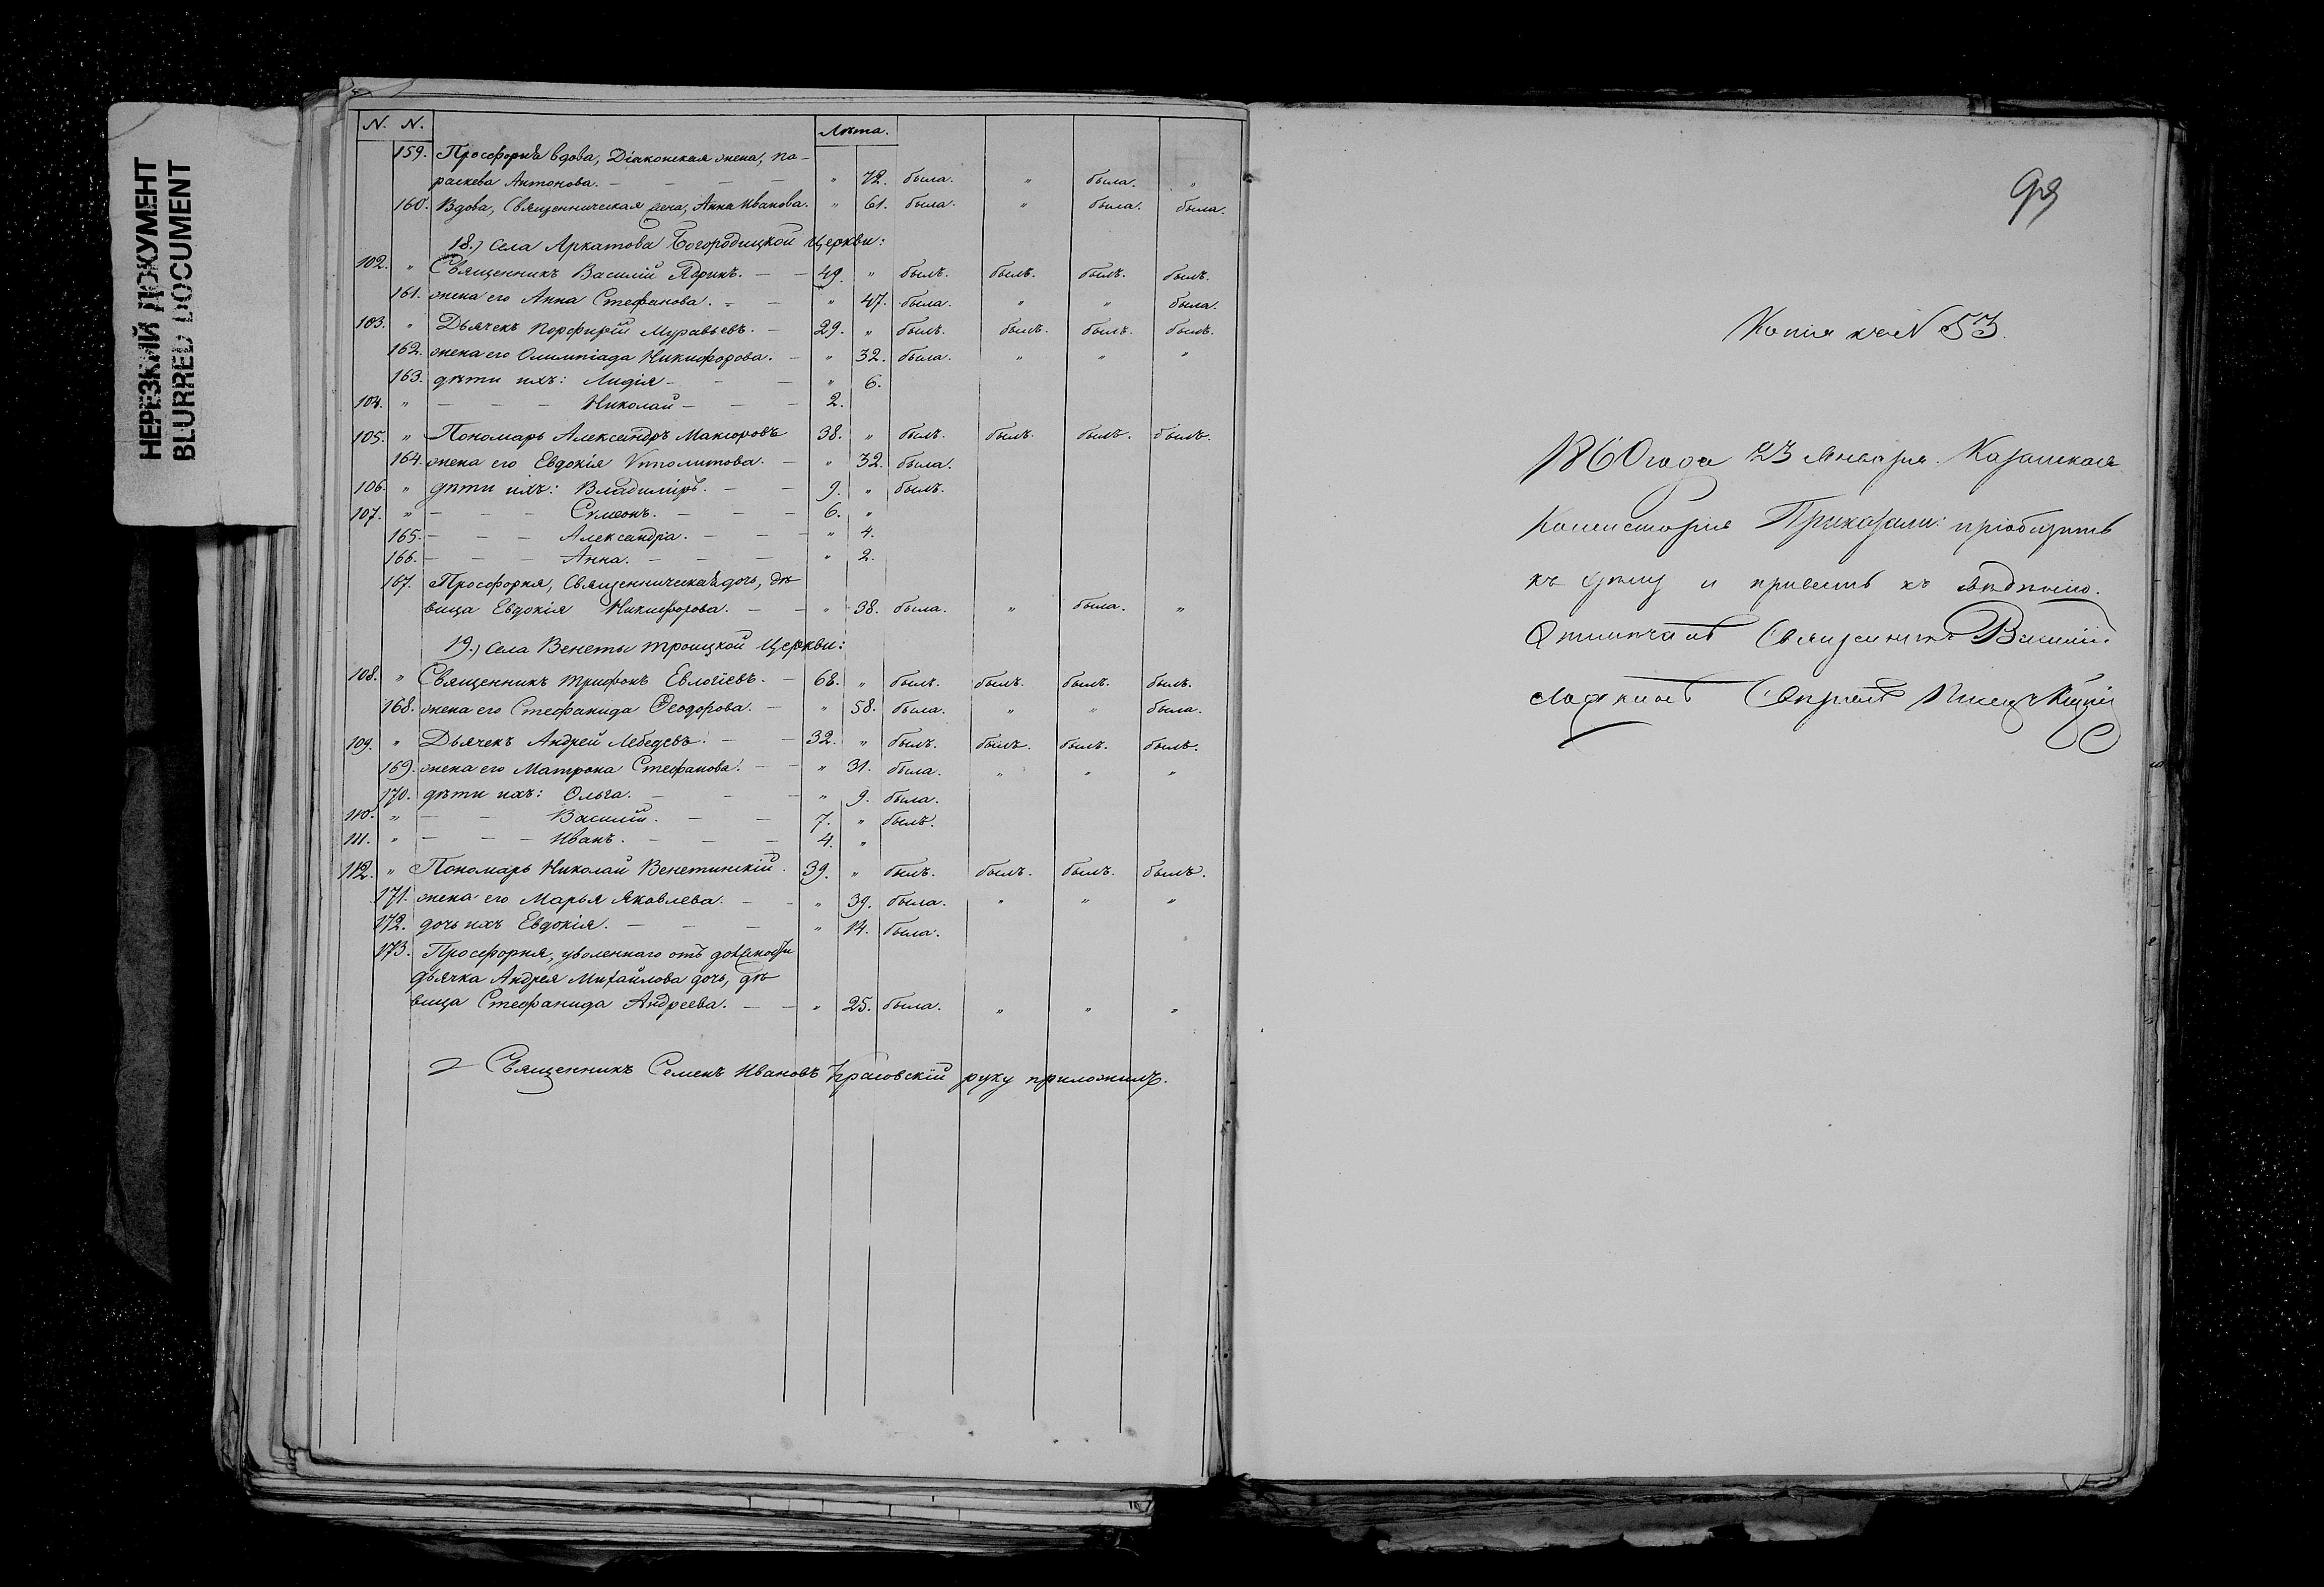 НЕРЕЗКИЙ ДОКУМЕНТ
BLURRED DOCUMENT
N. N. Лѣта.
159. Просфорня вдова, Діаконская жена, Па-
раскева Антонова. — — — — " 72. была. " была. "
160. Вдова, Священническая жена, Анна Иванова. " 61. была. " была. была.
18.) Села Аркатова Богородицкой Церкви:
102. " Священникъ Василій Ядринъ. — — 49. " былъ. былъ. былъ. былъ.
161. жена его Анна Стефанова. — — " 47. была. " " была.
103. " Дьячекъ Порфирій Муравьевъ. — 29. " былъ. былъ. былъ. былъ.
162. жена его Олимпіада Никифорова. — " 32. была. " " "
163. дѣти ихъ: Лидія — — — " 6.
104. " — — — Николай — — — 2.
105. " Пономарь Александръ Макаровъ 38. " былъ. былъ. былъ. былъ.
164. жена его Евдокія Ипполитова. — " 32. была.
106. " дѣти ихъ: Владиміръ. — — 9. " былъ.
107. " — — — Сѵмеонъ. — — — 6. "
165. — — — Александра. — — — " 4.
166. — — — Анна. — — — " 2.
167. Просфорня, Священническая дочь, дѣ
вица Евдокія Никифорова. — — " 38. была. " была. "
19.) Села Венеты Троицкой Церкви:
108. " Священникъ Трифонъ Евлогіевъ. — 68. " былъ. былъ. былъ. былъ.
168. жена его Стефанида Ѳеодорова. — " 58. была. " " была.
109. " Дьячекъ Андрей Лебедевъ. — — 32. " былъ. былъ. былъ. былъ.
169. жена его Матрона Стефанова. — — " 31. была. " " "
170. дѣти ихъ: Ольга. — — — " 9. была.
110. " — — Василій. — — 7. " былъ.
111. " — — — Иванъ. — — — 4. "
112. " Пономарь Николай Венетинскій. 39. " былъ. былъ. былъ. былъ.
171. жена его Марья Яковлева. — — " 39. была. " " "
172. дочь ихъ Евдокія. — — — " 14. была.
173. Просфорня, уволеннаго отъ должности
дьячка Андрея Михайлова дочь, дѣ
вица Стефанида Андреева. — — " 25. была. " " "
Священникъ Семенъ Ивановъ руку приложилъ.
Копія къ N 53.
1860 года 23 Января. Казанская
Консисторія Приказали: пріобщить
къ дѣлу и принять къ свѣденію.
Священникъ Василій